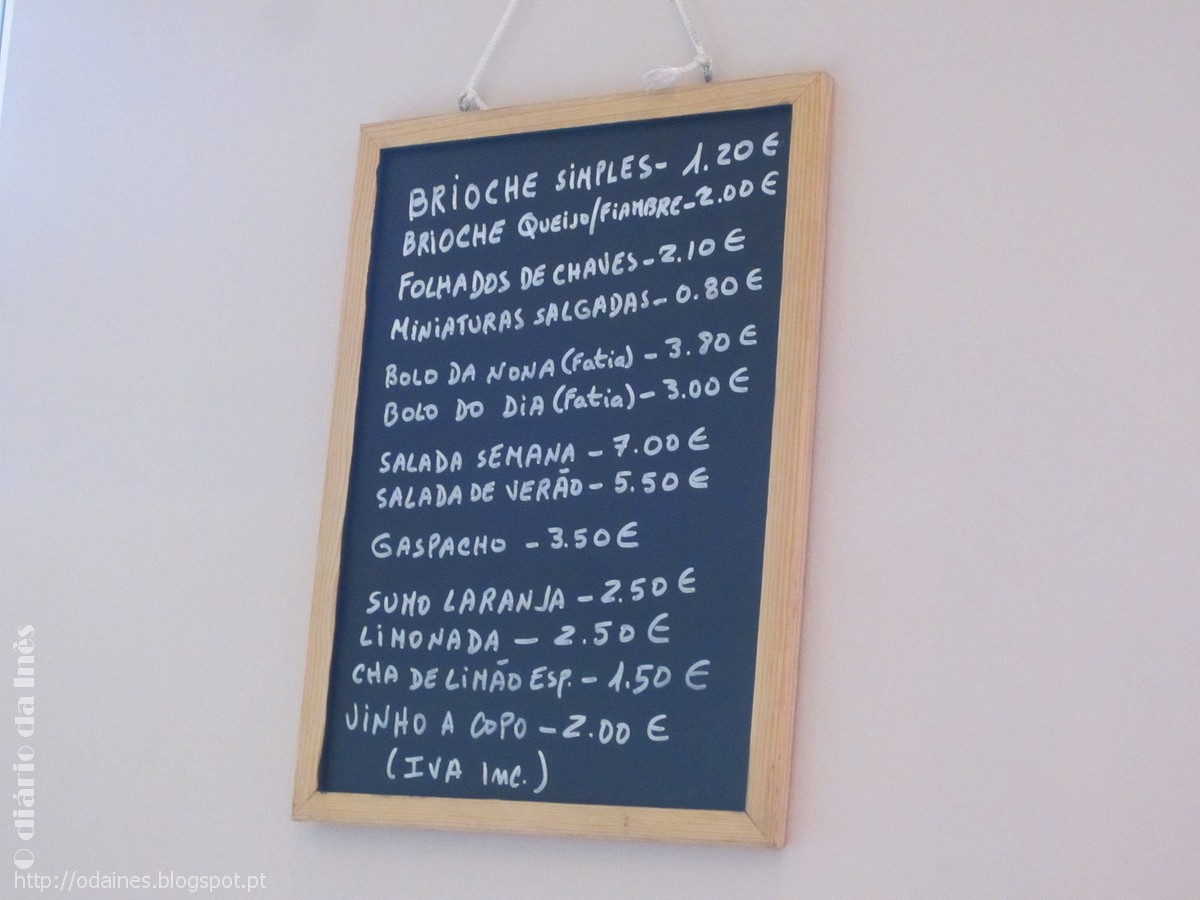 BRIOCHE SIMPLES- 1.20 €
BRIOCHE QUEIJO/FIAMBRE-2.00 €
FOLHADOS DE CHAVES-2.10 €
MINIATURAS SALGADAS-0.80 €
BOLO DA NONA (Fatia) - 3.80 €
BOLO DO DIA (Fatia)- 3.00 €
SALADA SEMANA - 7.00 €
SALADA DE VERÃO - 5.50 €
GASPACHO - 3.50 €
SUMO LARANJA - 2.50 €
LIMONADA - 2.50 €
CHA DE LIMÃO ESP. - 1.50 €
VINHO A COPO - 2.00 €
(IVA INC.)
O diário da Inês
http://odaines.blogspot.pt